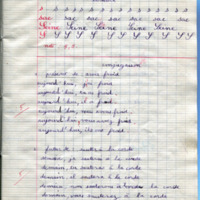 s s s s s s s s s s
sac sac sac sac sac sac sac
Seine Seine Seine Seine Seine
S S S S S S S S S S S S
conjugaison
présent de avoir froid
aujourd'hui, j'ai froid
aujourd'hui, tu as froid
aujourd'hui, il a froid
aujourd'hui, nous avons froid
aujourd'hui, vous avez froid
aujourd'hui, ils ont froid
futur de sauter à la corde
demain, je sauterai à la corde
demain, tu sauteras à la corde
demain, il sautera à la corde
demain, nous sauterons à la corde
demain, vous sauterez à la corde